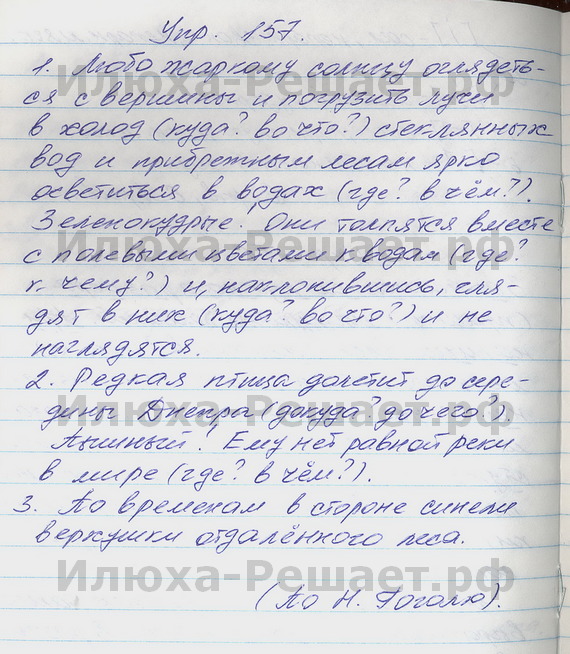 Упр. 157.
1. Любо жаркому солнцу оглядеть-
ся с вершины и погрузить лучи
в холод (куда? во что?) стеклянных
вод и прибрежным лесам ярко
осветиться в водах (где? в чём?).
Зеленокудрые! Они толпятся вместе
с полевыми цветами к водам (где?
к чему?) и, наклонившись, гля-
дят в них (куда? во что?) и не
наглядятся.
2. Редкая птица долетит до сере-
дины Днепра (докуда? до чего?).
Пышный! Ему нет равной реки
в мире (где? в чём?).
3. По временам в стороне синели
верхушки отдалённого леса.
(По Н. Гоголю).
Илюха-Решает.рф
Илюха-Решает.рф
Илюха-Решает.рф
Илюха-Решает.рф